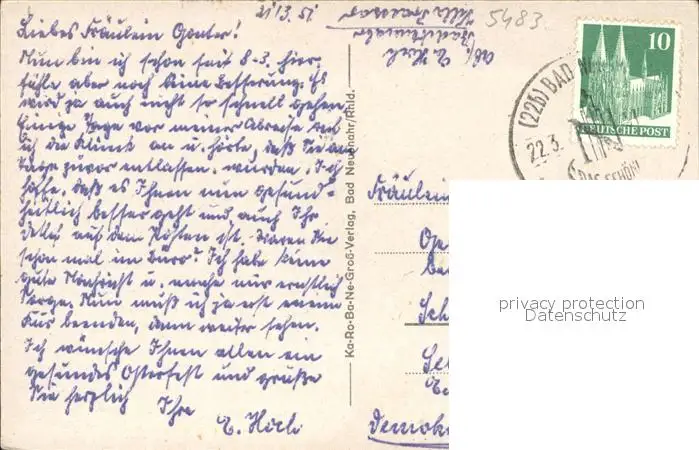 21/3. 51
Liebes Fräulein Gonter!
Nun bin ich schon seit 8-3. hier,
fühle aber noch keine Besserung. Es
wird ja auch nicht so schnell gehen.
Einige Tage vor meiner Abreise rief
ich die Klinik an u. hörte, daß Sie am
Tage zuvor entlassen wurden. Ich
hoffe, daß es Ihnen nun gesund-
heitlich besser geht und auch Ihr
auf dem Posten ist. Waren Sie
schon mal im Büro? Ich habe keine
gute Nachricht u. mache mir ernstlich
Sorge. Nun muß ich ja erst meine
Kur beenden, dann weiter sehen.
Ich wünsche Ihnen allen ein
gesundes Osterfest und grüße
Sie herzlich Ihre
E.
Abs. E.
Bad Neuenahr
Villa
5483
10
DEUTSCHE POST
(22b) BAD N
22.3.
DAS SCHÖN
Ka-Ro-Ba-Ne-Groß-Verlag, Bad Neuenahr/Rhld.
Fräulein
Demok
privacy protection
Datenschutz